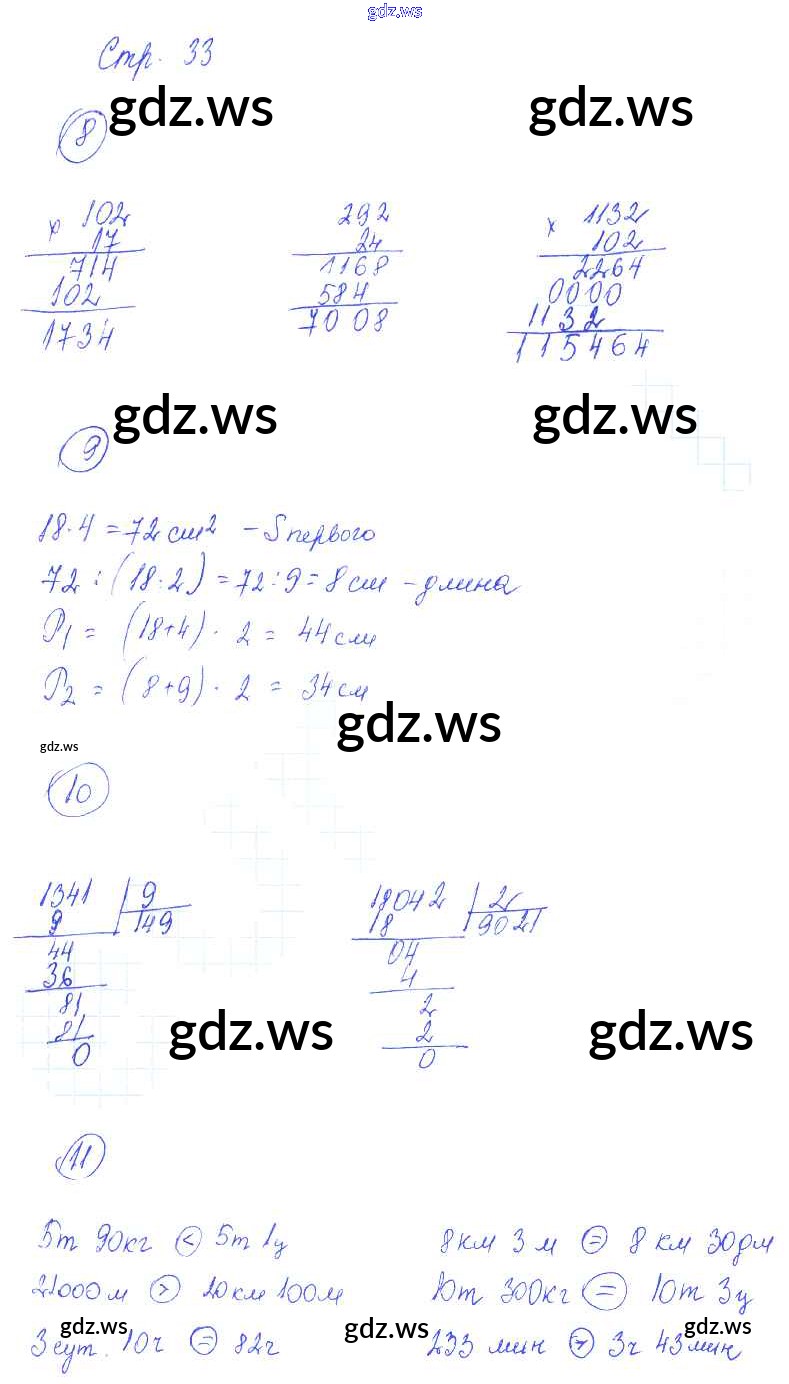 gdz.ws
Стр. 33
gdz.ws gdz.ws
8
x 102 292 x 1132
17 24 102
714 1168 2264
102 584 0000
1734 7008 1132
115464
gdz.ws gdz.ws
9
18·4 = 72 см² - S первого
72 : (18:2) = 72:9 = 8 см - длина
P₁ = (18+4) · 2 = 44 см
P₂ = (8+9) · 2 = 34 см
gdz.ws
gdz.ws
10
1341 | 9 18042 | 2
9 149 18 9021
44 04
36 4
81 2
81 2
0 0
gdz.ws gdz.ws
11
5т 90кг < 5т 1ц 8км 3м = 8 км 30дм
21000м > 20км 100м 10т 300кг = 10т 3ц
3 сут. 10ч = 82ч 233 мин > 3ч 43мин
gdz.ws gdz.ws gdz.ws